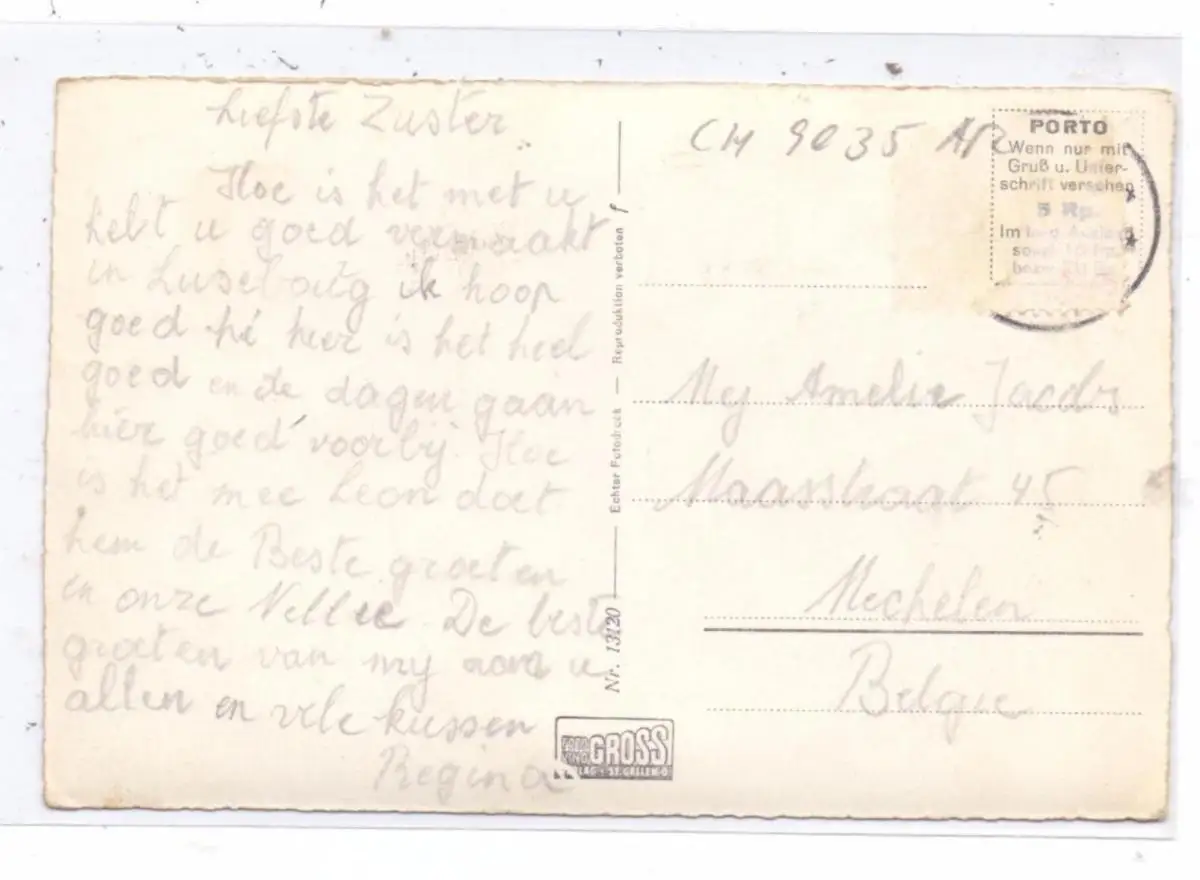 Liefste Zuster
Hoe is het met u
hebt u goed vermaakt
in Luseboug ik hoop
goed hé hier is het heel
goed en de dagen gaan
hier goed voorbij. Hoe
is het mee Leon doet
hem de Beste groeten
en onze Nellie De beste
groeten van my aan u
allen en vele kussen
Regina
Nr. 13120
Echter Fotodruck — Reproduktion verboten
GROSS
ST. GALLEN-O
CH 9035 AR
PORTO
Wenn nur mit
Gruß u. Unter-
schrift versehen
5 Rp.
Im
Mej Amelie Jacobs
Maasstraat 45
Mechelen
Belgie